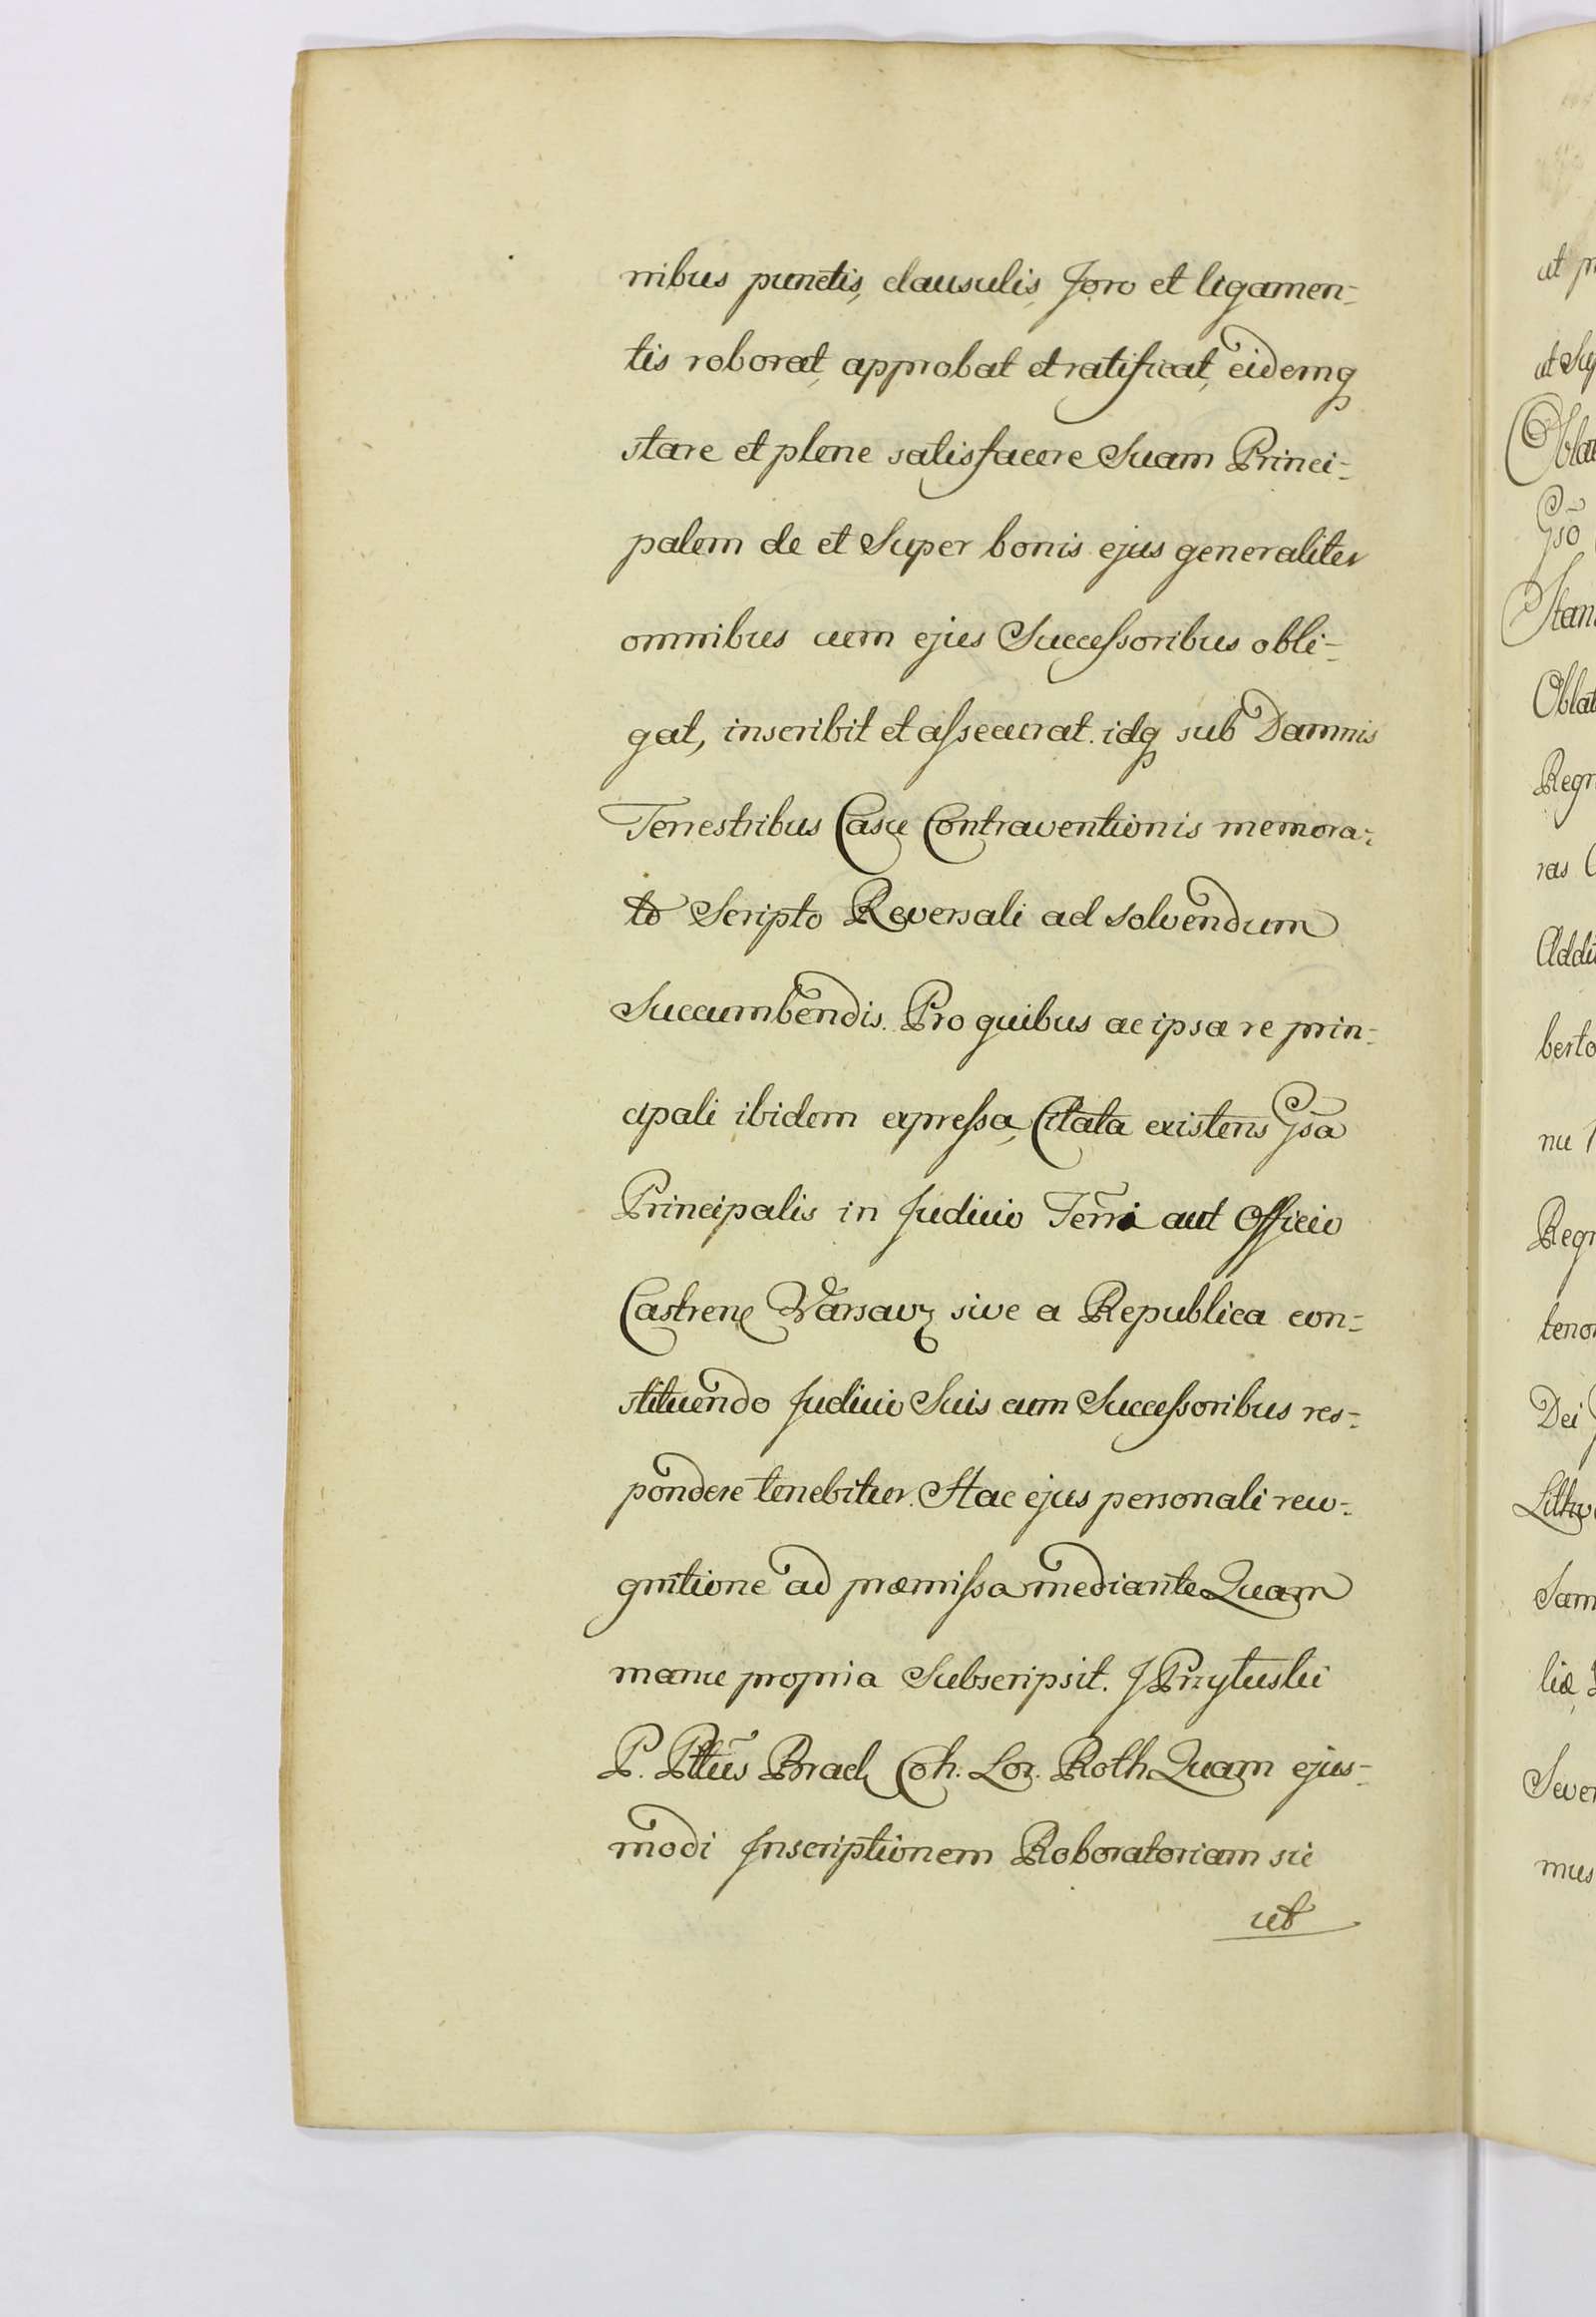 nibus punctis, clausulis, foro et ligamen=
tis roborat, approbat et ratificat, eidemq
stare et plene satisfacere Suam Princi=
palem de et Super bonis ejus generaliter
omnibus cum ejus Successoribus obli=
gat, inscribit et assecurat. idq sub Damnis
Terrestribus Casu Contraventionis memora=
to Scripto Reversali ad solvendum
Succumbendis. Pro quibus ac ipsa re prin=
cipali ibidem expressa, Citata existens Gsa
Principalis in Judicio Terri aut Officio
Castren Varsav sive a Republica con=
stituendo Judicio Suis cum Successoribus res=
pondere tenebitur. Hac ejus personali reco=
gnitione ad præmissa mediante Quam
manu propria Subscripsit. J Przytuski
P. Pttus Brac Coh. Lor. Roth Quam ejus=
modi Inscriptionem Roboratoriam sic
ut